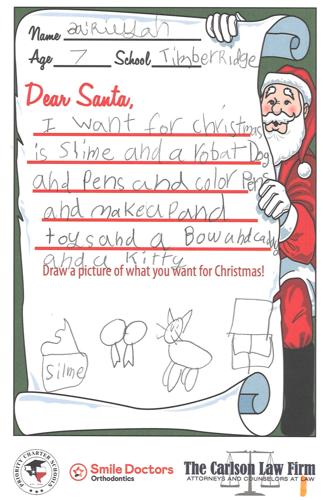 Name za'riyah
Age 7 School Timber Ridge
Dear Santa,
I want for christmas
is slime and a robat Dog
and Pens and color Pens
and makeap and
toys and a Bow and cady
and a Kitty
Draw a picture of what you want for Christmas!
Silme
PRIORITY CHARTER SCHOOLS
Smile Doctors
Orthodontics
The Carlson Law Firm
ATTORNEYS AND COUNSELORS AT LAW